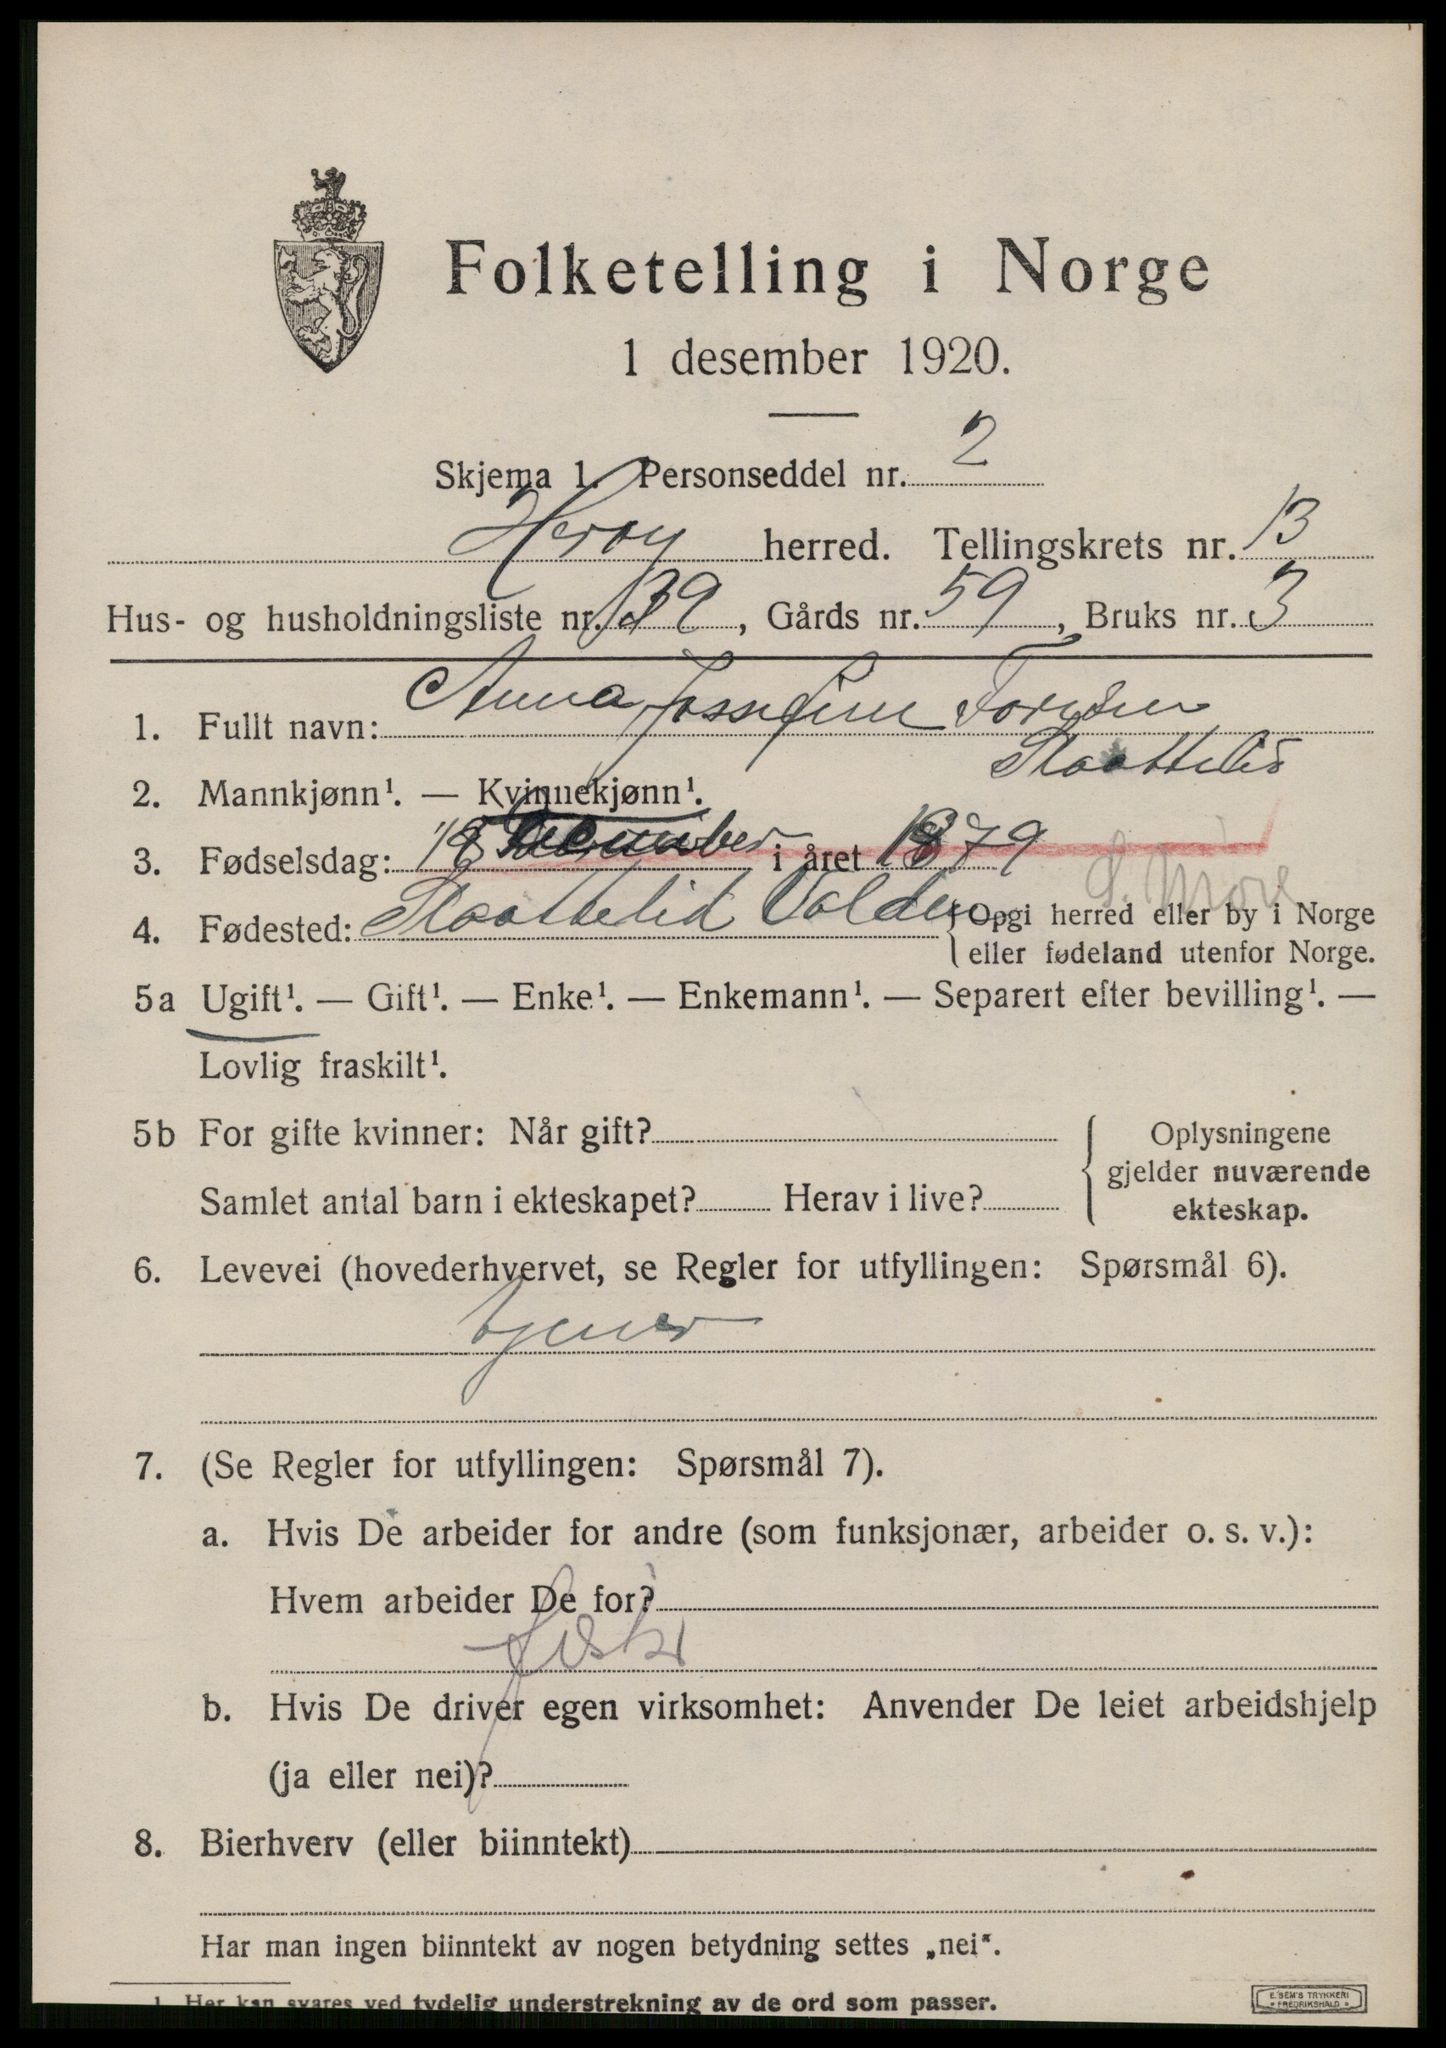 Folketelling i Norge
1 desember 1920.
Skjema 1. Personseddel nr. 2
Herøy herred. Tellingskrets nr. 13
Hus- og husholdningsliste nr. 39, Gårds nr. 59, Bruks nr. 3
1. Fullt navn: Anna Jossefine
2. Mannkjønn¹. — Kvinnekjønn¹.
3. Fødselsdag: 18 December i året 1879
S. Møre
4. Fødested: Slaattelid { Opgi herred eller by i Norge
eller fødeland utenfor Norge.
5a Ugift¹. — Gift¹. — Enke¹. — Enkemann¹. — Separert efter bevilling¹. —
Lovlig fraskilt¹.
5b For gifte kvinner: Når gift?
Samlet antal barn i ekteskapet? Herav i live?
{ Oplysningene
gjelder nuværende
ekteskap.
6. Levevei (hovederhvervet, se Regler for utfyllingen: Spørsmål 6).
7. (Se Regler for utfyllingen: Spørsmål 7).
a. Hvis De arbeider for andre (som funksjonær, arbeider o. s. v.):
Hvem arbeider De for?
b. Hvis De driver egen virksomhet: Anvender De leiet arbeidshjelp
(ja eller nei)?
8. Bierhverv (eller biinntekt)
Har man ingen biinntekt av nogen betydning settes „nei".
1. Her kan svares ved tydelig understrekning av de ord som passer.
E. SEM'S TRYKKERI
FREDRIKSHALD